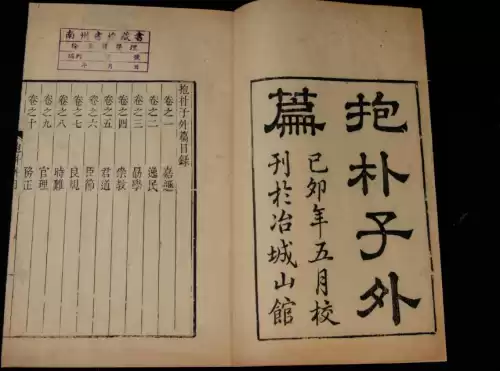 抱朴子外
篇
己卯年五月校
刊於冶城山館
南州書樓藏書
抱朴子外篇目錄
卷之一 嘉遯
卷之二 逸民
卷之三 勗學
卷之四 崇教
卷之五 君道
卷之六 臣節
卷之七 良規
卷之八 時難
卷之九 官理
卷之十 務正